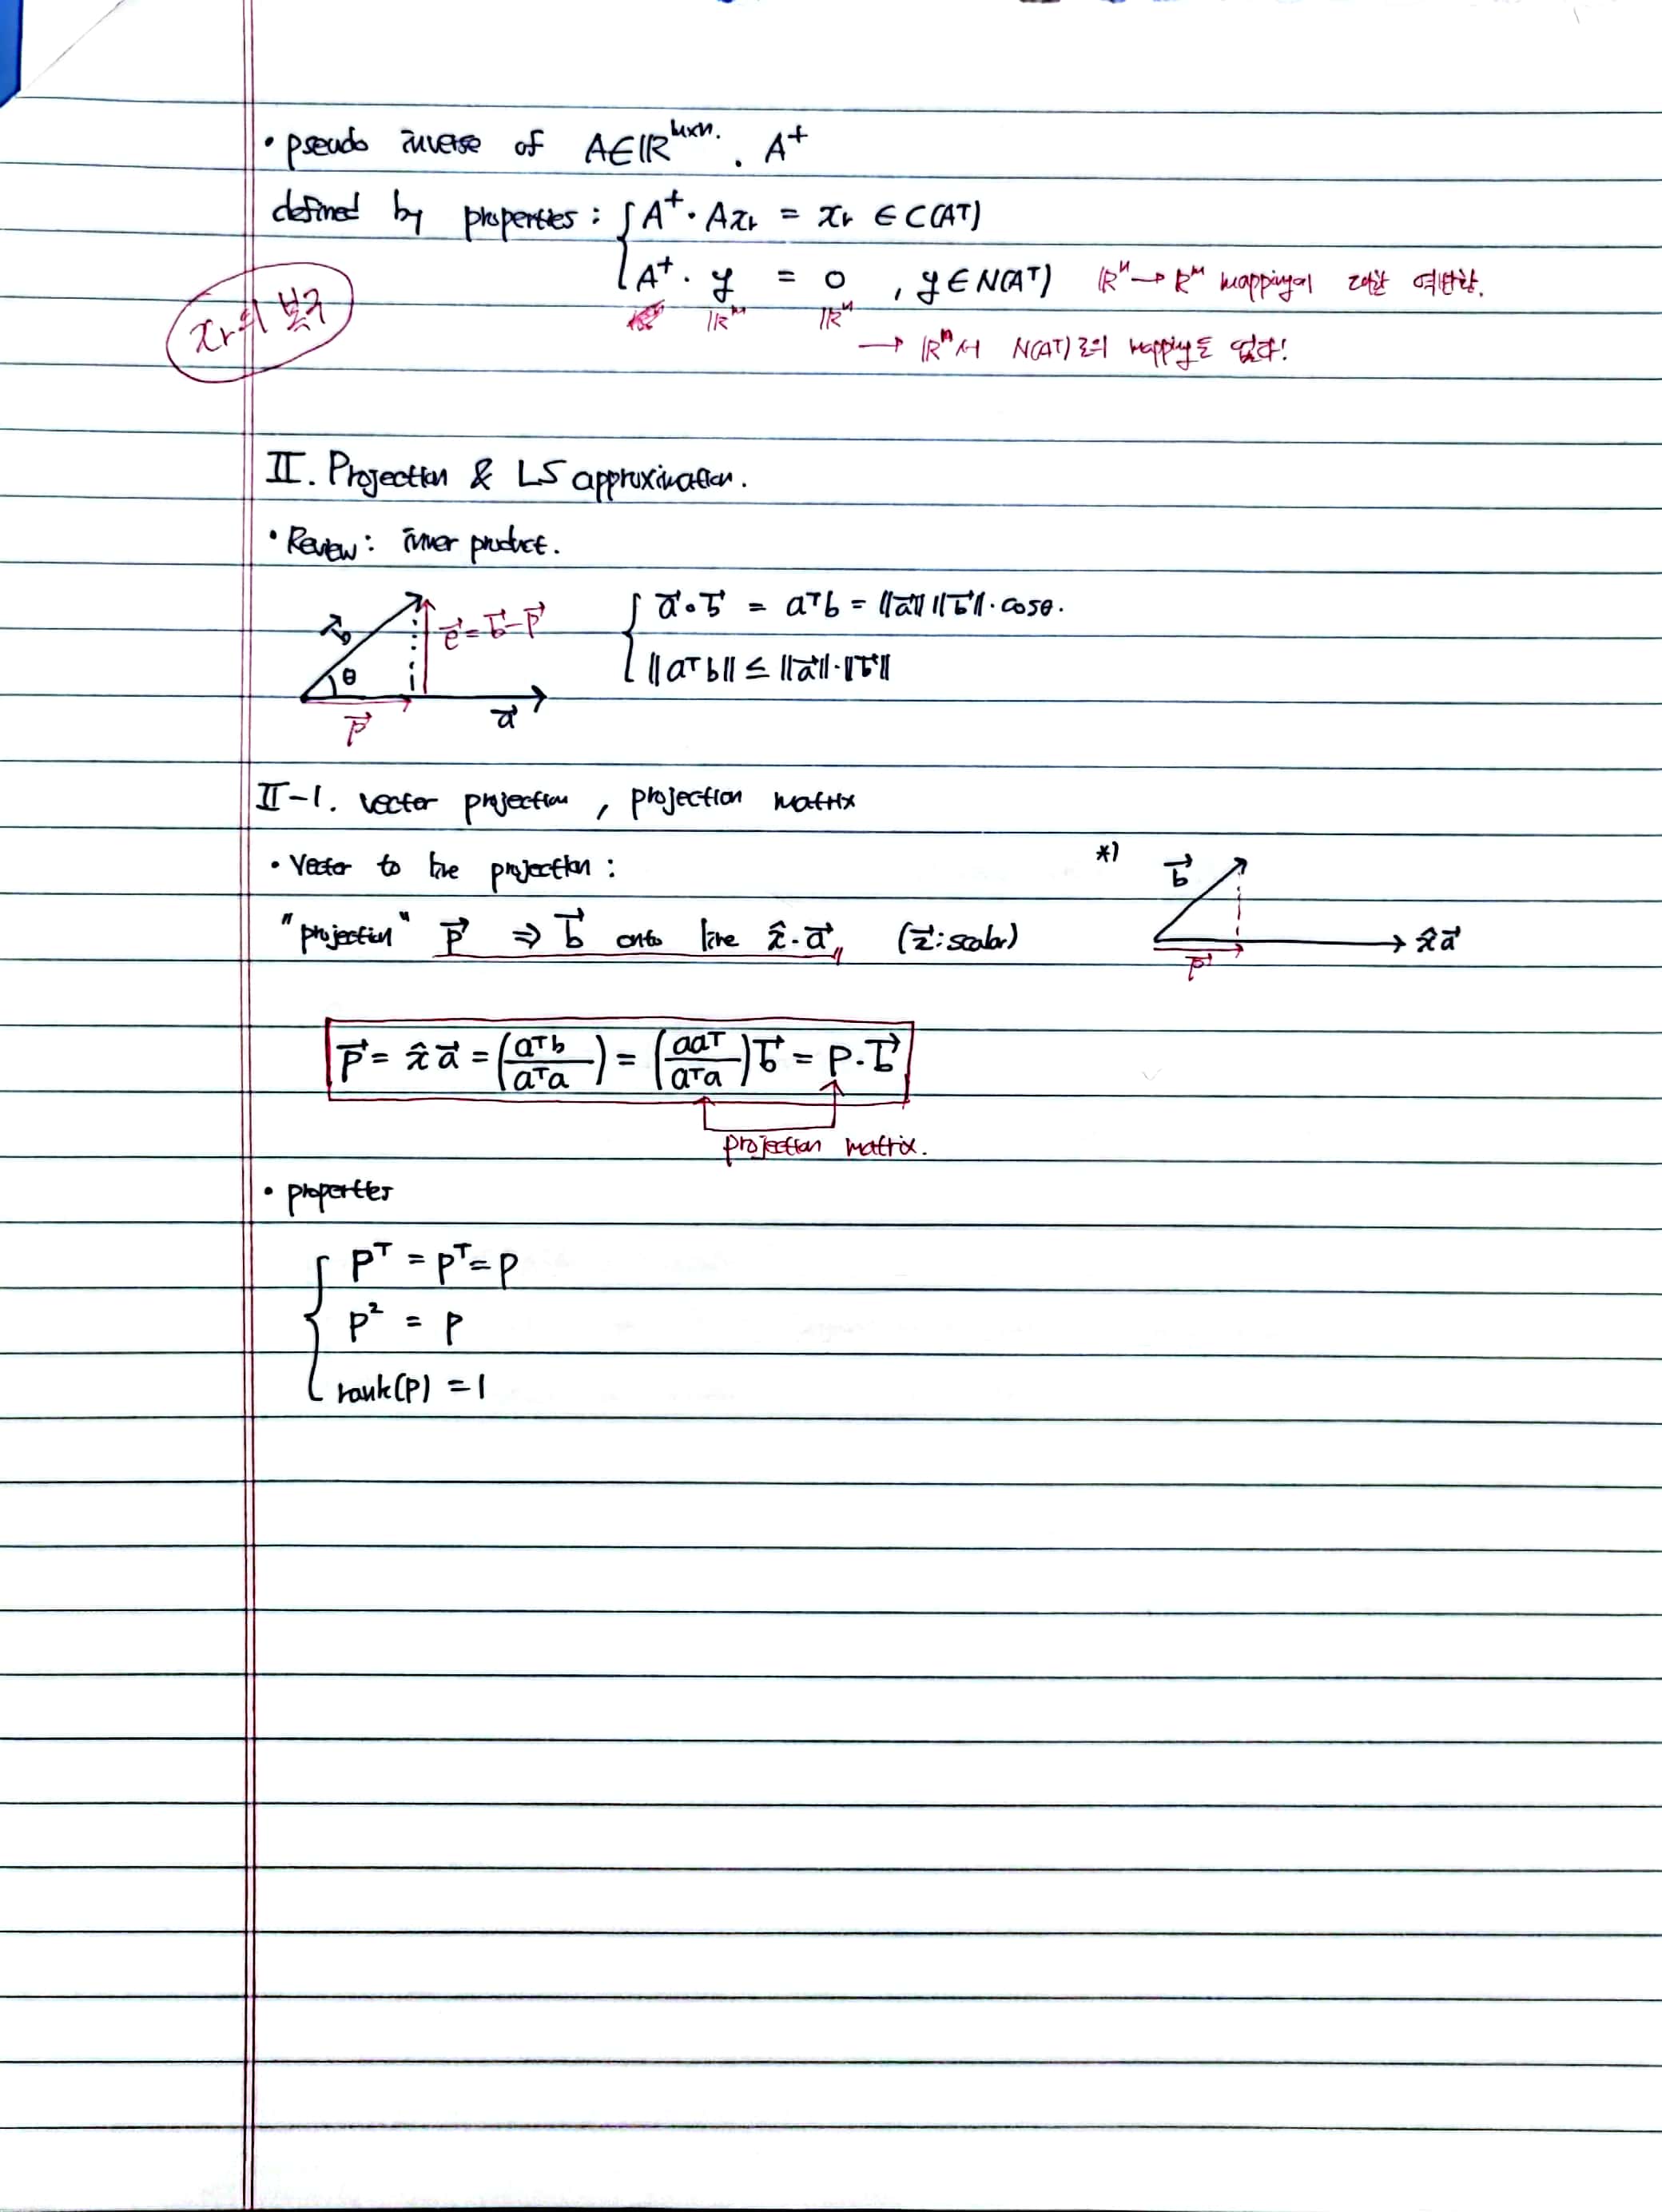 • pseudo inverse of A∈ℝᵐˣⁿ. A⁺
defined by properties : { A⁺·Axᵣ = xᵣ ∈ C(Aᵀ)
A⁺· y = 0 , y∈N(Aᵀ) ℝⁿ→ℝᵐ mapping에 대한 역변환.
ℝᵐ ℝⁿ
xᵣ의 복구
→ ℝⁿ서 N(Aᵀ)로의 mapping도 없다!
II. Projection & LS approximation.
• Review : inner product.
b⃗ θ p⃗ a⃗ e⃗ = b⃗-p⃗
{ a⃗·b⃗ = aᵀb = ‖a⃗‖‖b⃗‖·cosθ.
‖aᵀb‖ ≤ ‖a⃗‖·‖b⃗‖
II-1. vector projection , projection matrix
• Vector to line projection :
"projection" p⃗ ⇒ b⃗ onto line x̂·a⃗ (x⃗:scalar)
*) b⃗ p⃗ x̂a⃗
p⃗ = x̂a⃗ = (aᵀb/aᵀa) = (aaᵀ/aᵀa)b⃗ = P·b⃗
projection matrix.
• properties
{ Pᵀ = Pᵀ= P
P² = P
rank(P) = 1